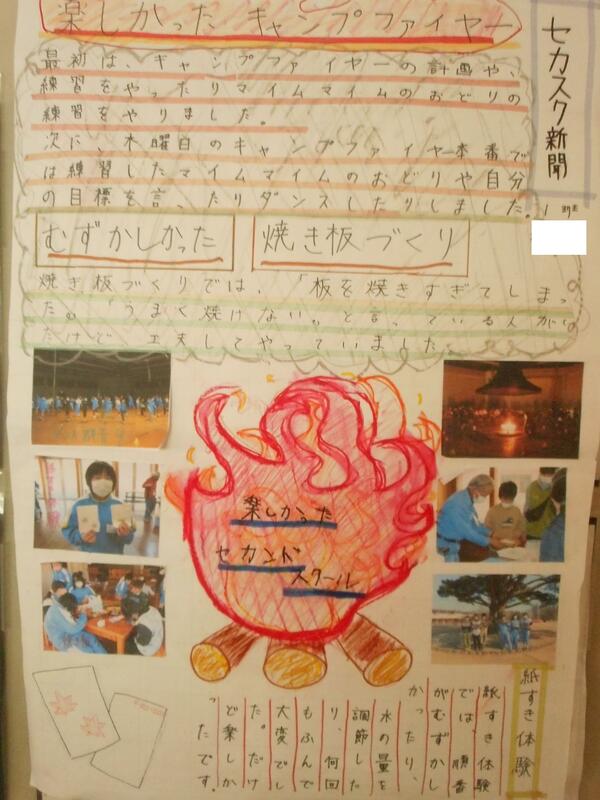 楽しかったキャンプファイヤー
セカスク新聞
最初は、キャンプファイヤーの計画や、
練習をやったりマイムマイムのおどりの
練習をやりました。
次に、木曜日のキャンプファイヤー本番で
は練習したマイムマイムのおどりや自分
の目標を言ったりダンスしたりしました。
むずかしかった 焼き板づくり
焼き板づくりでは、「板を焼きすぎてしまっ
た。」「うまく焼けない。」と言っている人がい
たけど、工夫してやっていました。
楽しかった
セカンド
スクール
紙すき体験
紙すき体験
では、順番
がむずかし
かったり、
水の量を
調節した
り、何回
もふんで
大変でし
た。だけ
ど楽しか
ったです。